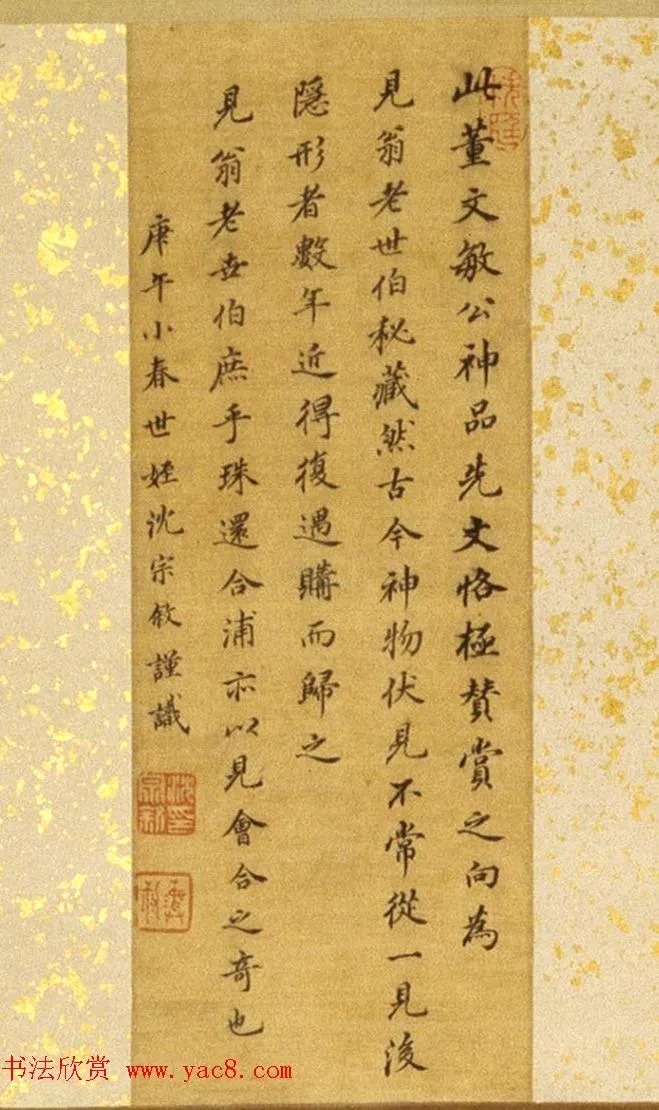 此董文敏公神品先文恪極賛賞之向為
見翁老世伯秘藏然古今神物伏見不常從一見後
隱形者數年近得復遇購而歸之
見翁老世伯庶乎珠還合浦亦以見會合之奇也
庚午小春世姪沈宗敘謹識
书法欣赏 www.yac8.com